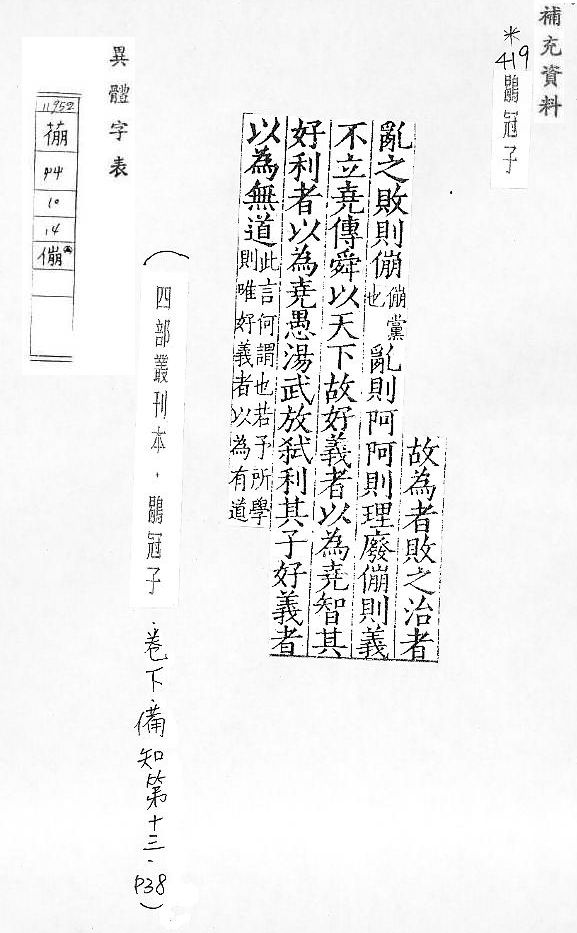 補充資料
*419
鶡冠子
故為者敗之治者
亂之敗則傰傰黨也亂則阿阿則理廢傰則義
不立堯傳舜以天下故好義者以為堯智其
好利者以為堯愚湯武放弑利其子好義者
以為無道此言何謂也若予所學則唯好義者以為有道
異體字表
(四部叢刊本．鶡冠子．卷下．備知第十三．P38)
11952
94
10
14
傰